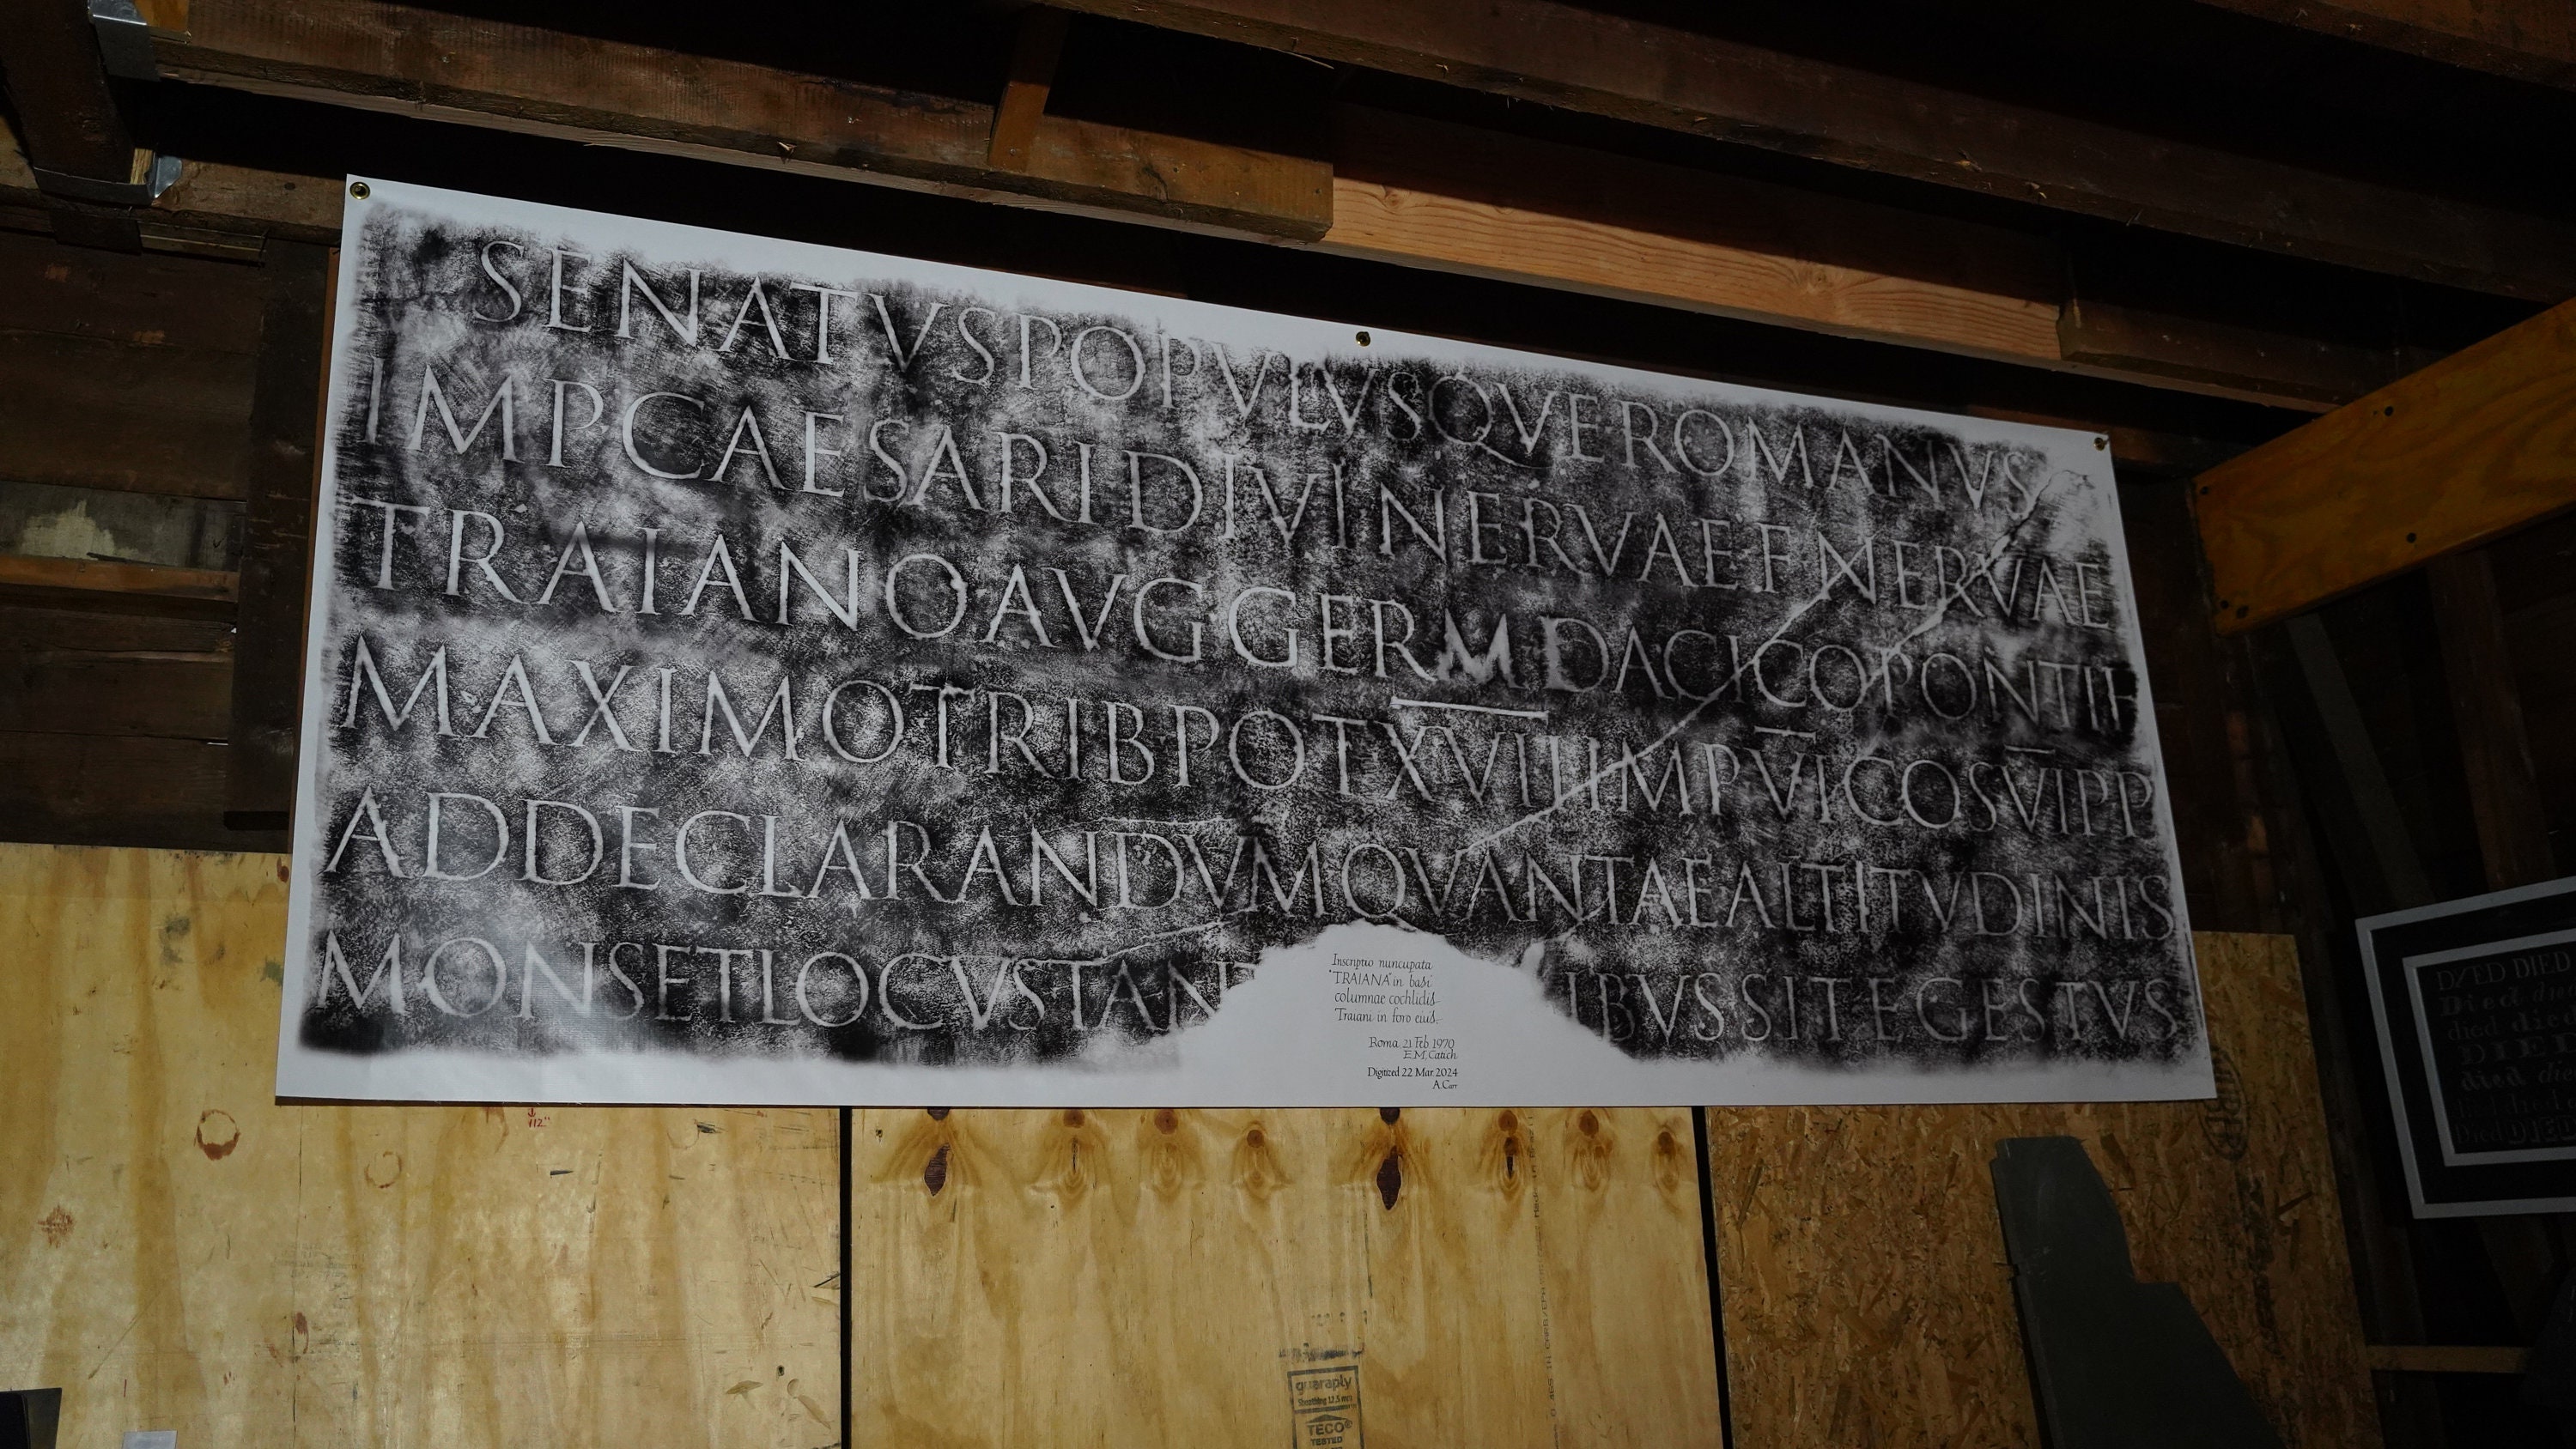 SENATVSPOPVLVSQVEROMANVS
IMPCAESARIDIVINERVAEFNERVAE
TRAIANOAVGGERMDACICOPONTIF
MAXIMOTRIBPOTXVIIIMPVICOSVIPP
ADDECLARANDVMQVANTAEALTITVDINIS
MONSETLOCVSTANT IBVSSITEGESTVS
Inscriptio nuncupata
"TRAIANA" in basi
columnae cochlidis
Traiani in foro eius
Roma 21 Feb 1970
E.M. Catich
Digitized 22 Mar 2024
A. Carr
DIED DIED
Died
died
DIED
died
Died DIED
guaraply
Sheathing 12.5 mm
TECO®
TESTED